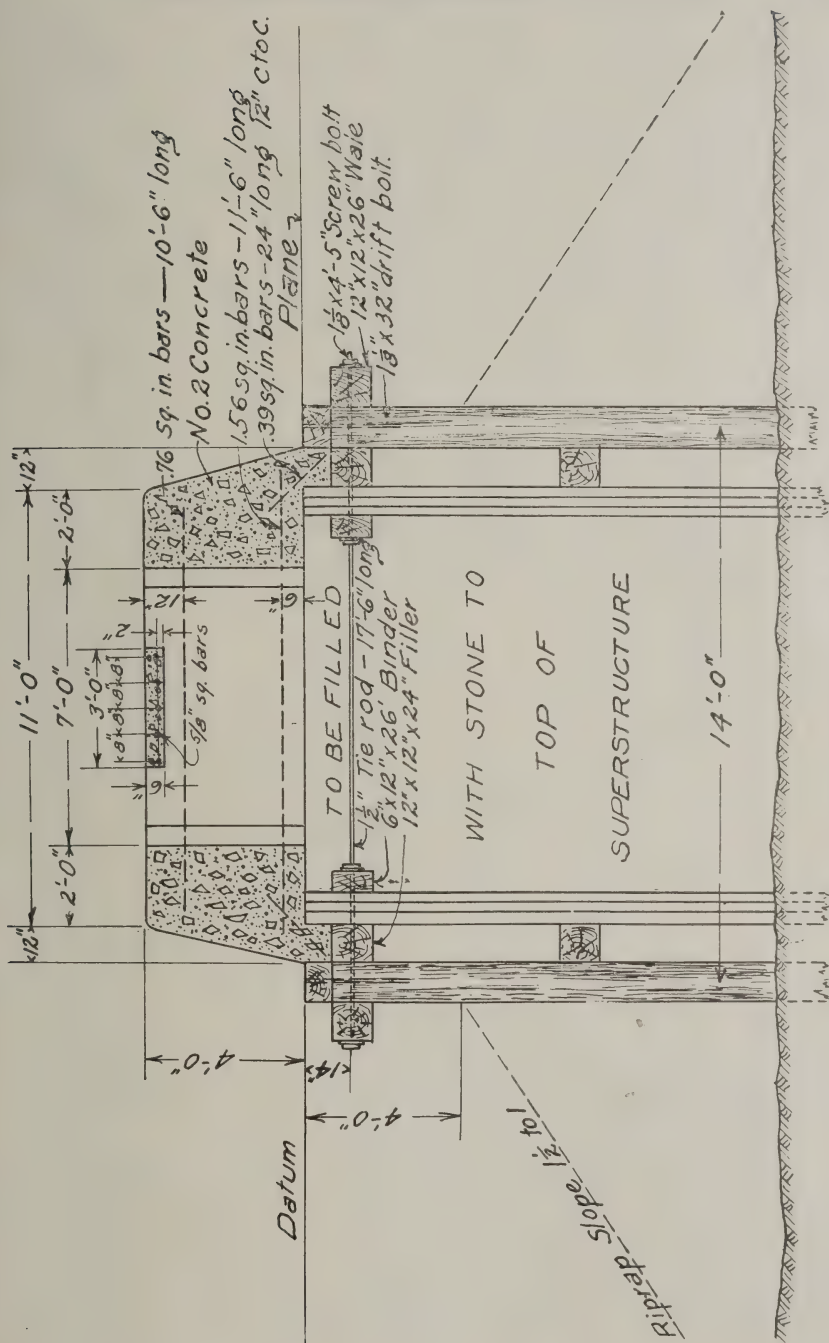 12"
11'-0"
12"
2'-0"
7'-0"
2'-0"
3'-0"
8" 8" 8" 8"
6"
2"
12"
6"
5/8" sq. bars
.76 sq. in. bars — 10'-6" long
No. 2 Concrete
1.56 sq. in. bars - 11'-6" long
.39 sq. in. bars - 24" long 12" c to c.
Plane
Datum
4'-0"
14"
4'-0"
1 1/8" x 4'-5" Screw bolt
12" x 12" x 26" Wale
1 1/8" x 32" drift bolt.
TO BE FILLED
1 1/2" Tie rod - 17'-6" long
6" x 12" x 26' Binder
12" x 12" x 24" Filler
WITH STONE TO
TOP OF
SUPERSTRUCTURE
14'-0"
Riprap Slope 1 1/2 to 1